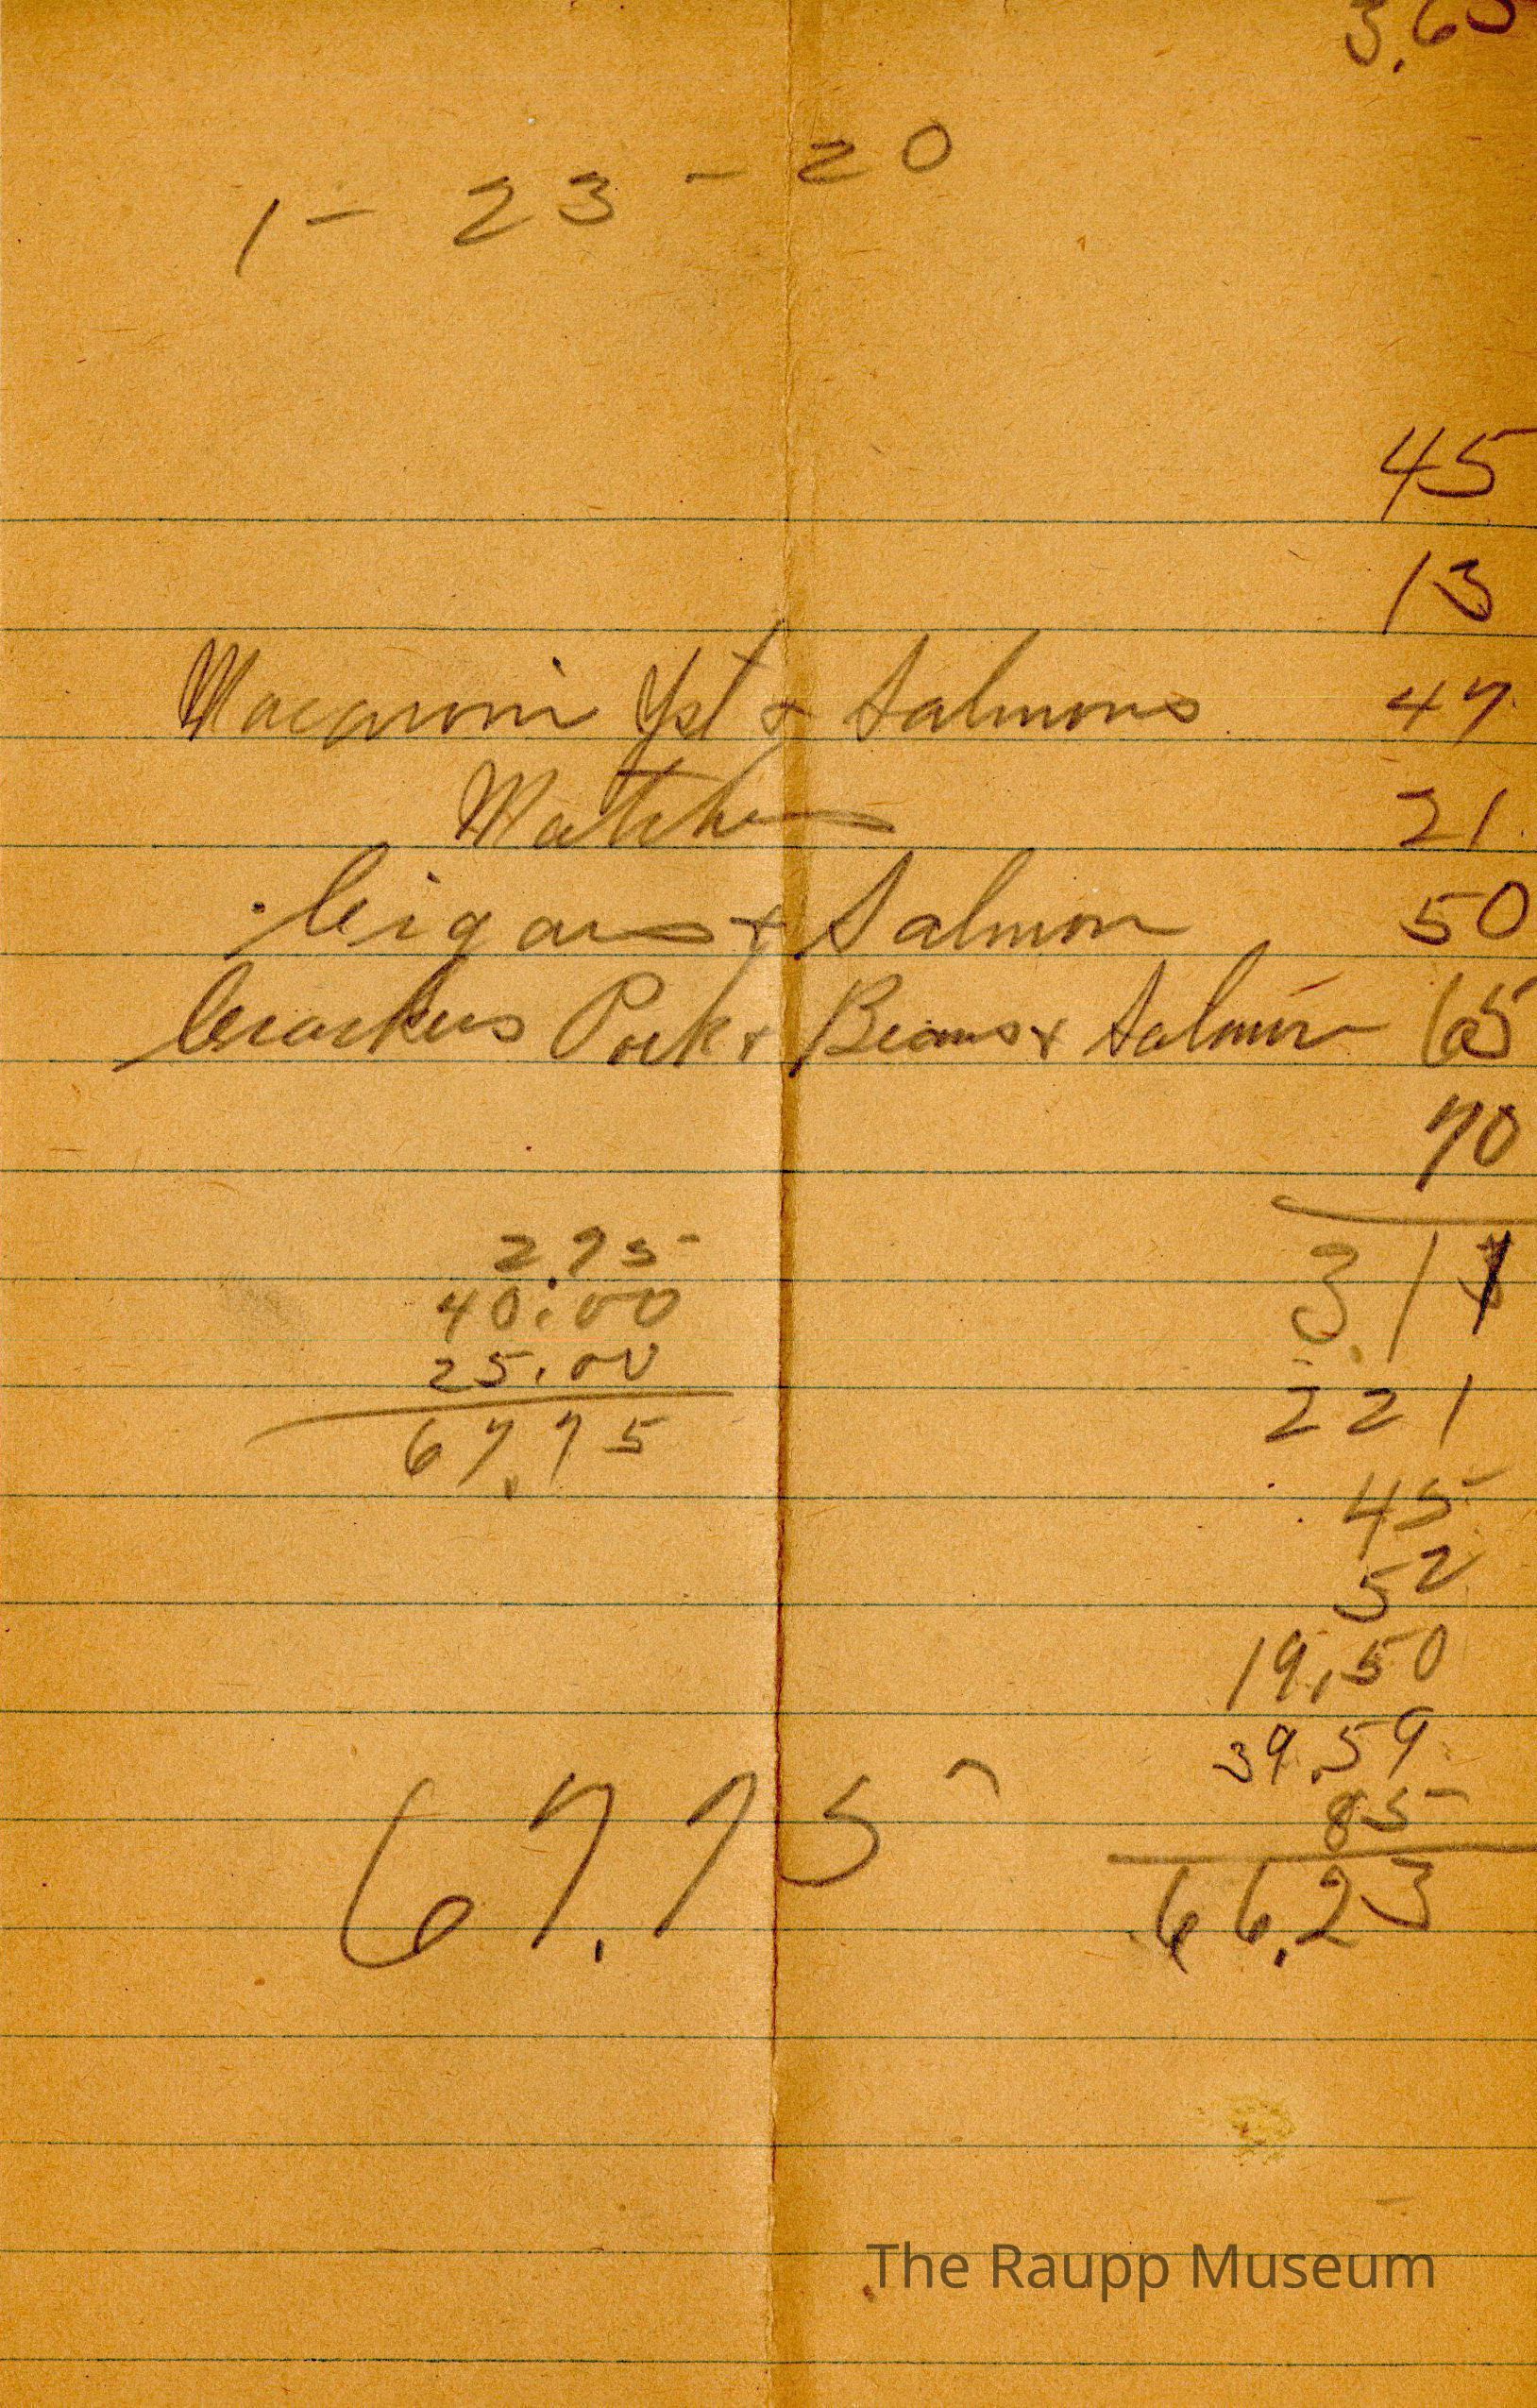 3.65
1 - 23 - 20
45
13
Macaroni Yst & Salmons 47
Matches 21
Cigars & Salmon 50
Crackers Pork & Beans & Salmon 65
70
3.11
2.75
40.00
25.00
67.75
221
45
52
19.50
39.59
85
66.23
67.75
The Raupp Museum